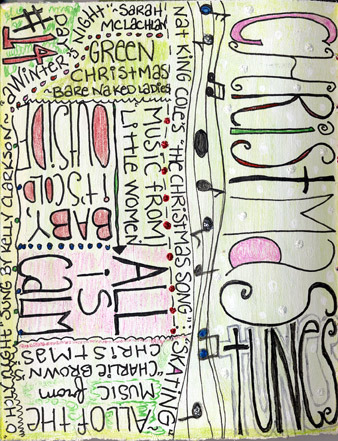 CHRISTMAS
TUNES
NAT KING COLE'S "THE CHRISTMAS SONG"
"SKATING"
DAY
#14
"WINTER'S NIGHT"
~SARAH
MCLACHLAN
GREEN
CHRISTMAS
~BARE NAKED LADIES
MUSIC FROM
LITTLE WOMEN
BABY,
IT'S COLD
OUTSIDE
ALL
IS
CALM
ALL OF THE
MUSIC
from
"CHARLIE BROWN"
CHRISTMAS
SUNG BY KELLY CLARKSON~